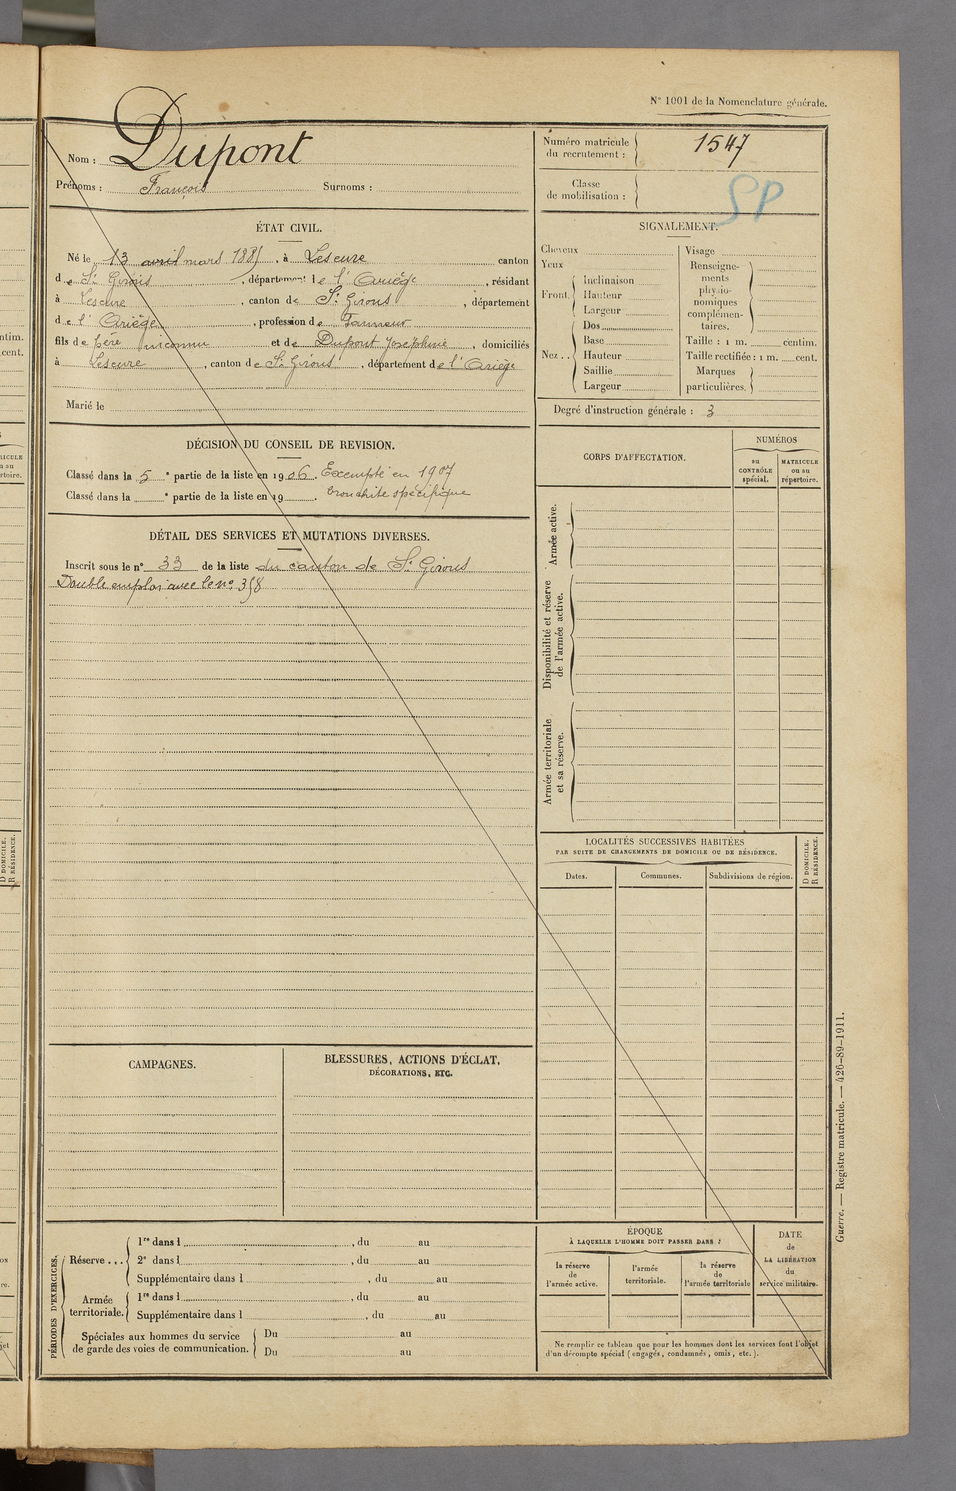 N° 1001 de la Nomenclature générale.
Nom : Dupont
Prénoms : François Surnoms :
Numéro matricule du recrutement : 1547
Classe de mobilisation :
SP
ÉTAT CIVIL.
Né le 13 avril mars 1885, à Lescure canton
de St Girons, département de l'Ariège, résidant
à Lescure, canton de St Girons, département
de l'Ariège, profession de Tanneur
fils de père inconnu et de Dupont Joséphine, domiciliés
à Lescure, canton de St Girons, département de l'Ariège
Marié le
SIGNALEMENT.
Cheveux
Yeux
Front. Inclinaison
Hauteur
Largeur
Nez .. Dos
Base
Hauteur
Saillie
Largeur
Visage
Renseigne-
ments
physio-
nomiques
complémen-
taires.
Taille : 1 m. centim.
Taille rectifiée : 1 m. cent.
Marques
particulières.
Degré d'instruction générale : 3
DÉCISION DU CONSEIL DE REVISION.
Classé dans la 5e partie de la liste en 1906. Exempté en 1907
Classé dans la e partie de la liste en 19 . bronchite spécifique
DÉTAIL DES SERVICES ET MUTATIONS DIVERSES.
Inscrit sous le n° 33 de la liste du canton de St Girons
Double emploi avec le no 358
CORPS D'AFFECTATION.
NUMÉROS
au
CONTRÔLE
spécial.
MATRICULE
ou au
répertoire.
Armée active.
Disponibilité et réserve
de l'armée active.
Armée territoriale
et sa réserve.
LOCALITÉS SUCCESSIVES HABITÉES
PAR SUITE DE CHANGEMENTS DE DOMICILE OU DE RÉSIDENCE.
Dates.
Communes.
Subdivisions de région.
D DOMICILE.
R RÉSIDENCE.
CAMPAGNES.
BLESSURES, ACTIONS D'ÉCLAT,
DÉCORATIONS, ETC.
PÉRIODES D'EXERCICES.
Réserve ... 1re dans l , du au
2e dans l , du au
Supplémentaire dans l , du au
Armée
territoriale. 1re dans l , du au
Supplémentaire dans l , du au
Spéciales aux hommes du service
de garde des voies de communication. Du au
Du au
ÉPOQUE
À LAQUELLE L'HOMME DOIT PASSER DANS :
la réserve
de
l'armée active.
l'armée
territoriale.
la réserve
de
l'armée territoriale
DATE
de
LA LIBÉRATION
du
service militaire.
Ne remplir ce tableau que pour les hommes dont les services font l'objet
d'un décompte spécial (engagés, condamnés, omis, etc.).
Guerre. — Registre matricule. — 426-89-1911.